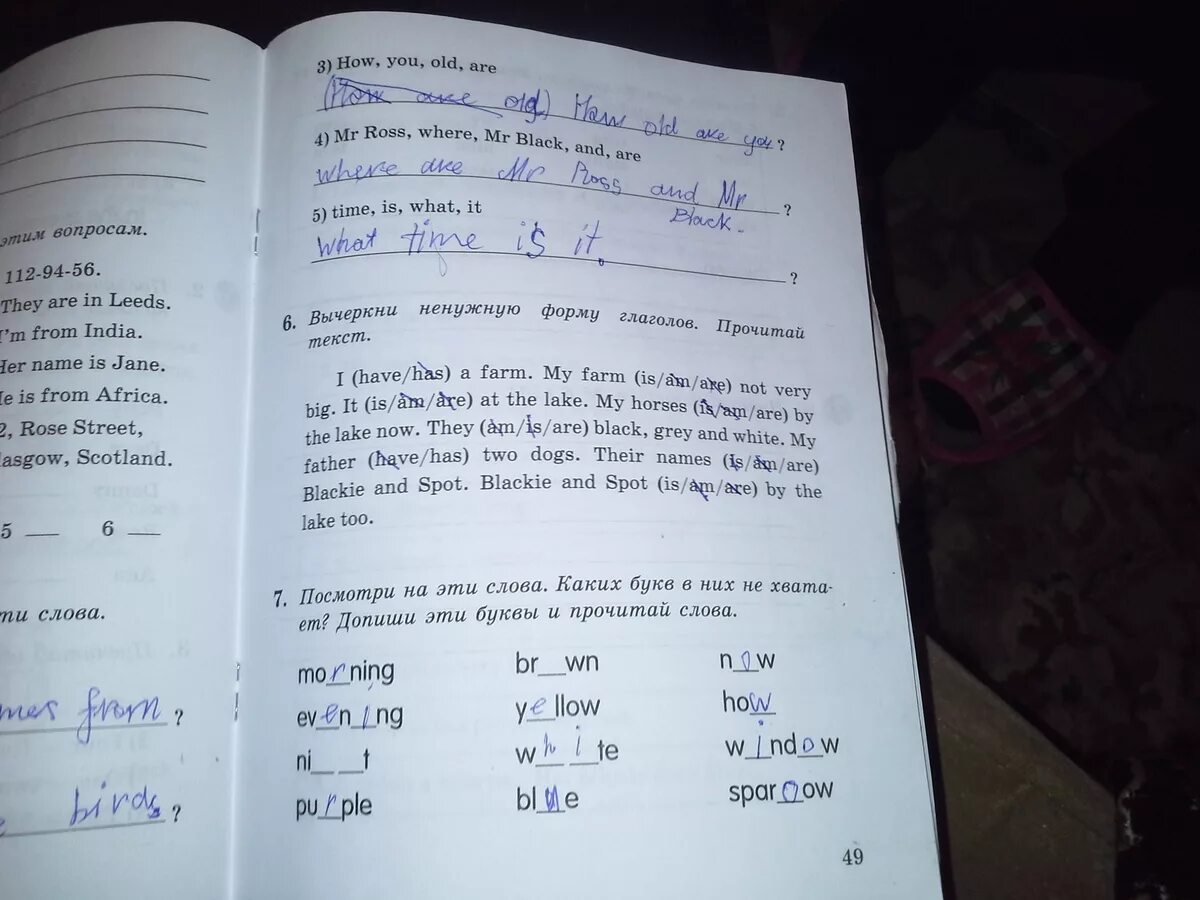 этим вопросам.
112-94-56.
They are in Leeds.
I'm from India.
Her name is Jane.
He is from Africa.
2, Rose Street,
Glasgow, Scotland.
5 __ 6 __
эти слова.
from ?
birds ?
3) How, you, old, are
(How are old) How old are you?
4) Mr Ross, where, Mr Black, and, are
where are Mr Ross and Mr ?
Black.
5) time, is, what, it
what time is it. ?
6. Вычеркни ненужную форму глаголов. Прочитай
текст.
I (have/has) a farm. My farm (is/am/are) not very
big. It (is/am/are) at the lake. My horses (is/am/are) by
the lake now. They (am/is/are) black, grey and white. My
father (have/has) two dogs. Their names (is/am/are)
Blackie and Spot. Blackie and Spot (is/am/are) by the
lake too.
7. Посмотри на эти слова. Каких букв в них не хвата-
ет? Допиши эти буквы и прочитай слова.
morning br__wn now
evening yellow how
ni__ __t white window
purple blue sparoow
49